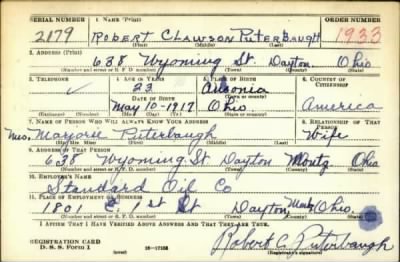 SERIAL NUMBER 1. NAME (Print) ORDER NUMBER
2179 ROBERT CLAWSON PUTERBAUGH 1933
(First) (Middle) (Last)
2. ADDRESS (Print)
638 Wyoming St. Dayton. Ohio
(Number and street or R. F. D. number) (Town) (County) (State)
3. TELEPHONE 4. AGE IN YEARS 5. PLACE OF BIRTH 6. COUNTRY OF CITIZENSHIP
✓ 23 Ansonia
DATE OF BIRTH (Town or county)
May 10-1917 Ohio America
(Mo.) (Day) (Yr.) (State or country)
7. NAME OF PERSON WHO WILL ALWAYS KNOW YOUR ADDRESS 8. RELATIONSHIP OF THAT PERSON
Mrs. Marjorie Puterbaugh Wife
(Mr., Mrs., Miss) (First) (Middle) (Last)
9. ADDRESS OF THAT PERSON
638 Wyoming St Dayton Montg Ohio
(Number and street or R. F. D. number) (Town) (County) (State)
10. EMPLOYER'S NAME
Standard Oil Co
11. PLACE OF EMPLOYMENT OR BUSINESS
1801 E. 1st St Dayton Montg. Ohio.
(Number and street or R. F. D. number) (Town) (County) (State)
I AFFIRM THAT I HAVE VERIFIED ABOVE ANSWERS AND THAT THEY ARE TRUE.
REGISTRATION CARD
D. S. S. Form 1 (over) 16-17105 Robert C. Puterbaugh
(Registrant's signature)